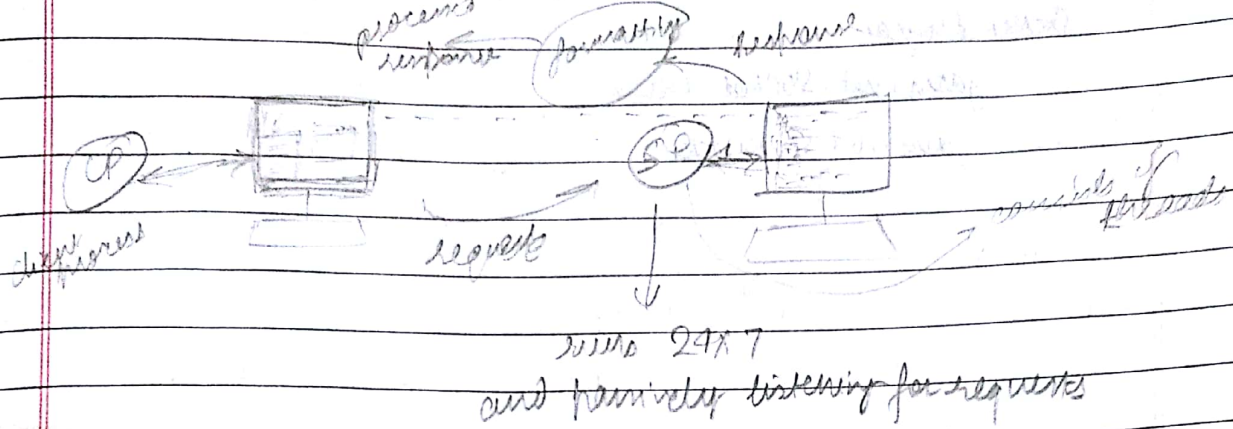 process
response
formatting
response
CP
SP
client
process
request
runs 24x7
and passively listening for requests